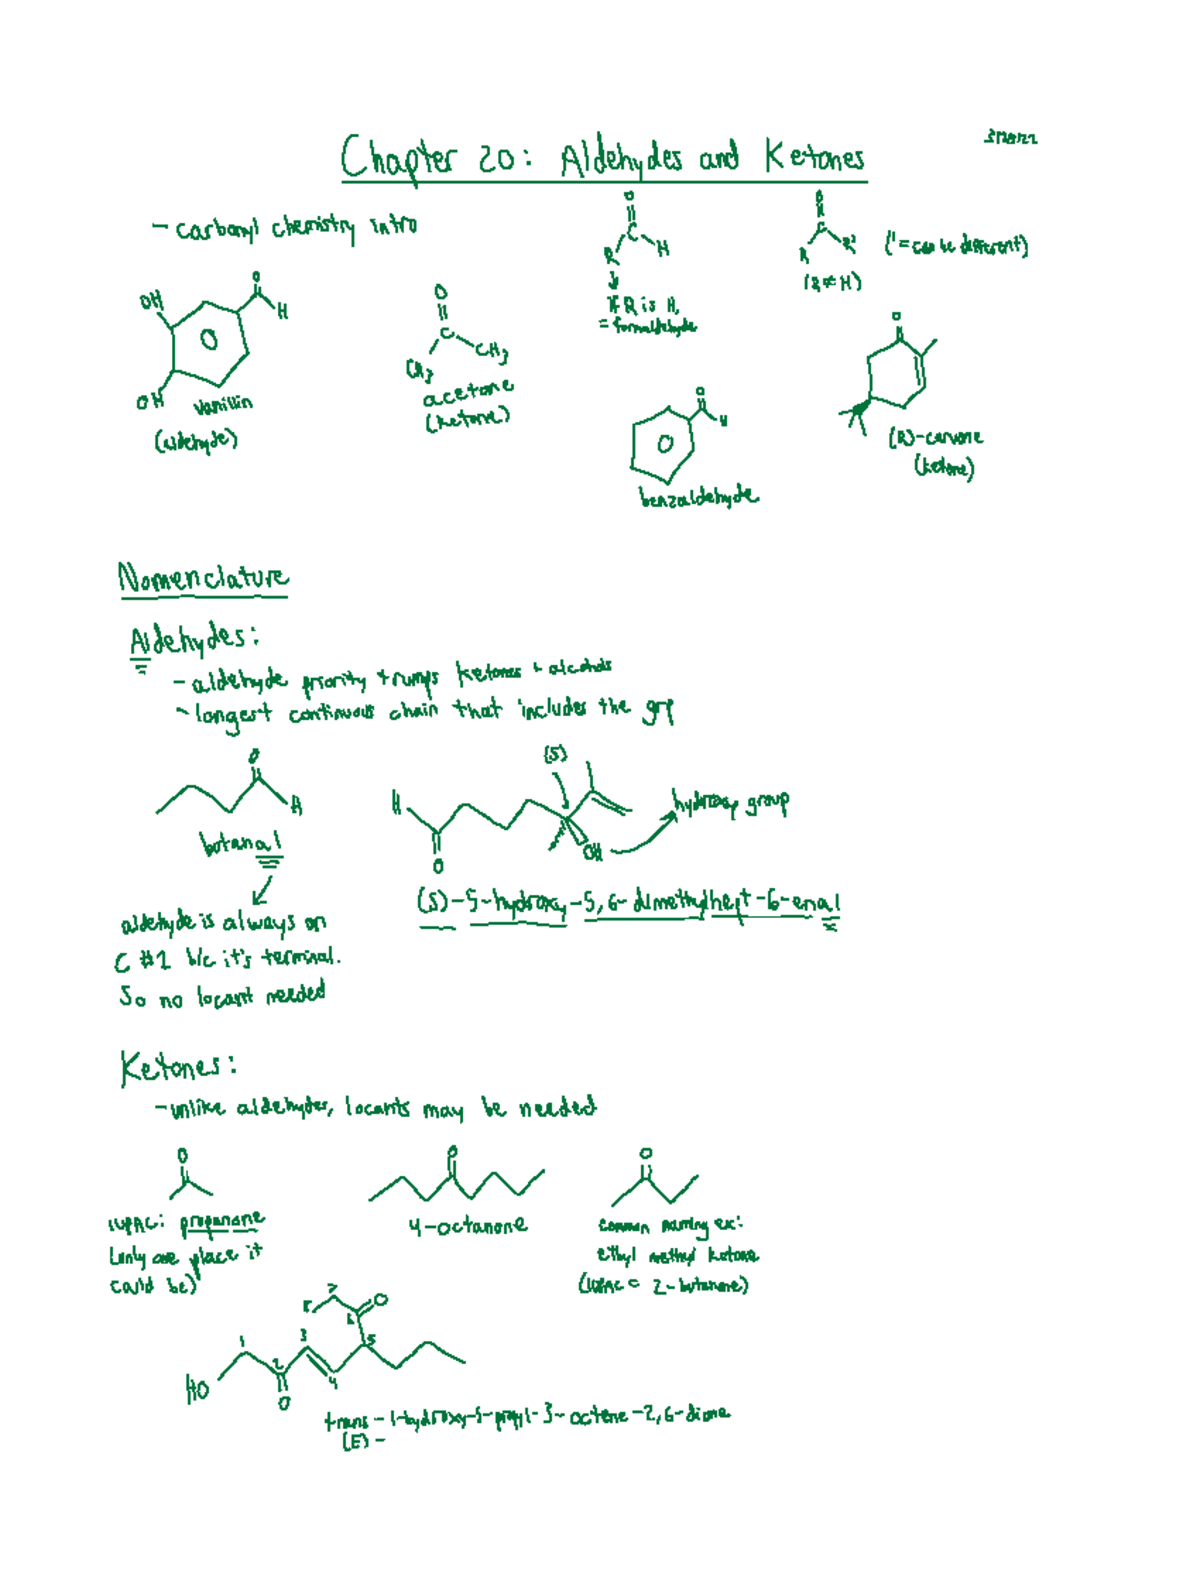 Chapter 20: Aldehydes and Ketones
- carbonyl chemistry intro
O
C
R
H
↓
if R is H,
= formaldehyde
O
C
R
R'
(' = can be different)
(R ≠ H)
OH
OH
O
H
vanillin
(aldehyde)
O
C
CH3
CH3
acetone
(ketone)
O
H
benzaldehyde
O
(R)-carvone
(ketone)
Nomenclature
Aldehydes:
- aldehyde priority trumps ketones + alcohols
- longest continuous chain that includes the grp
O
H
butanal
aldehyde is always on
C #1 b/c it's terminal.
So no locant needed
(S)
H
O
OH
hydroxy group
(S)-5-hydroxy-5,6-dimethylhept-6-enal
Ketones:
- unlike aldehydes, locants may be needed
O
IUPAC: propanone
(only one place it
could be)
O
4-octanone
O
common naming ex:
ethyl methyl ketone
(IUPAC = 2-butanone)
HO
1
2
O
3
4
5
6
O
7
8
trans-1-hydroxy-5-propyl-3-octene-2,6-dione
(E) -